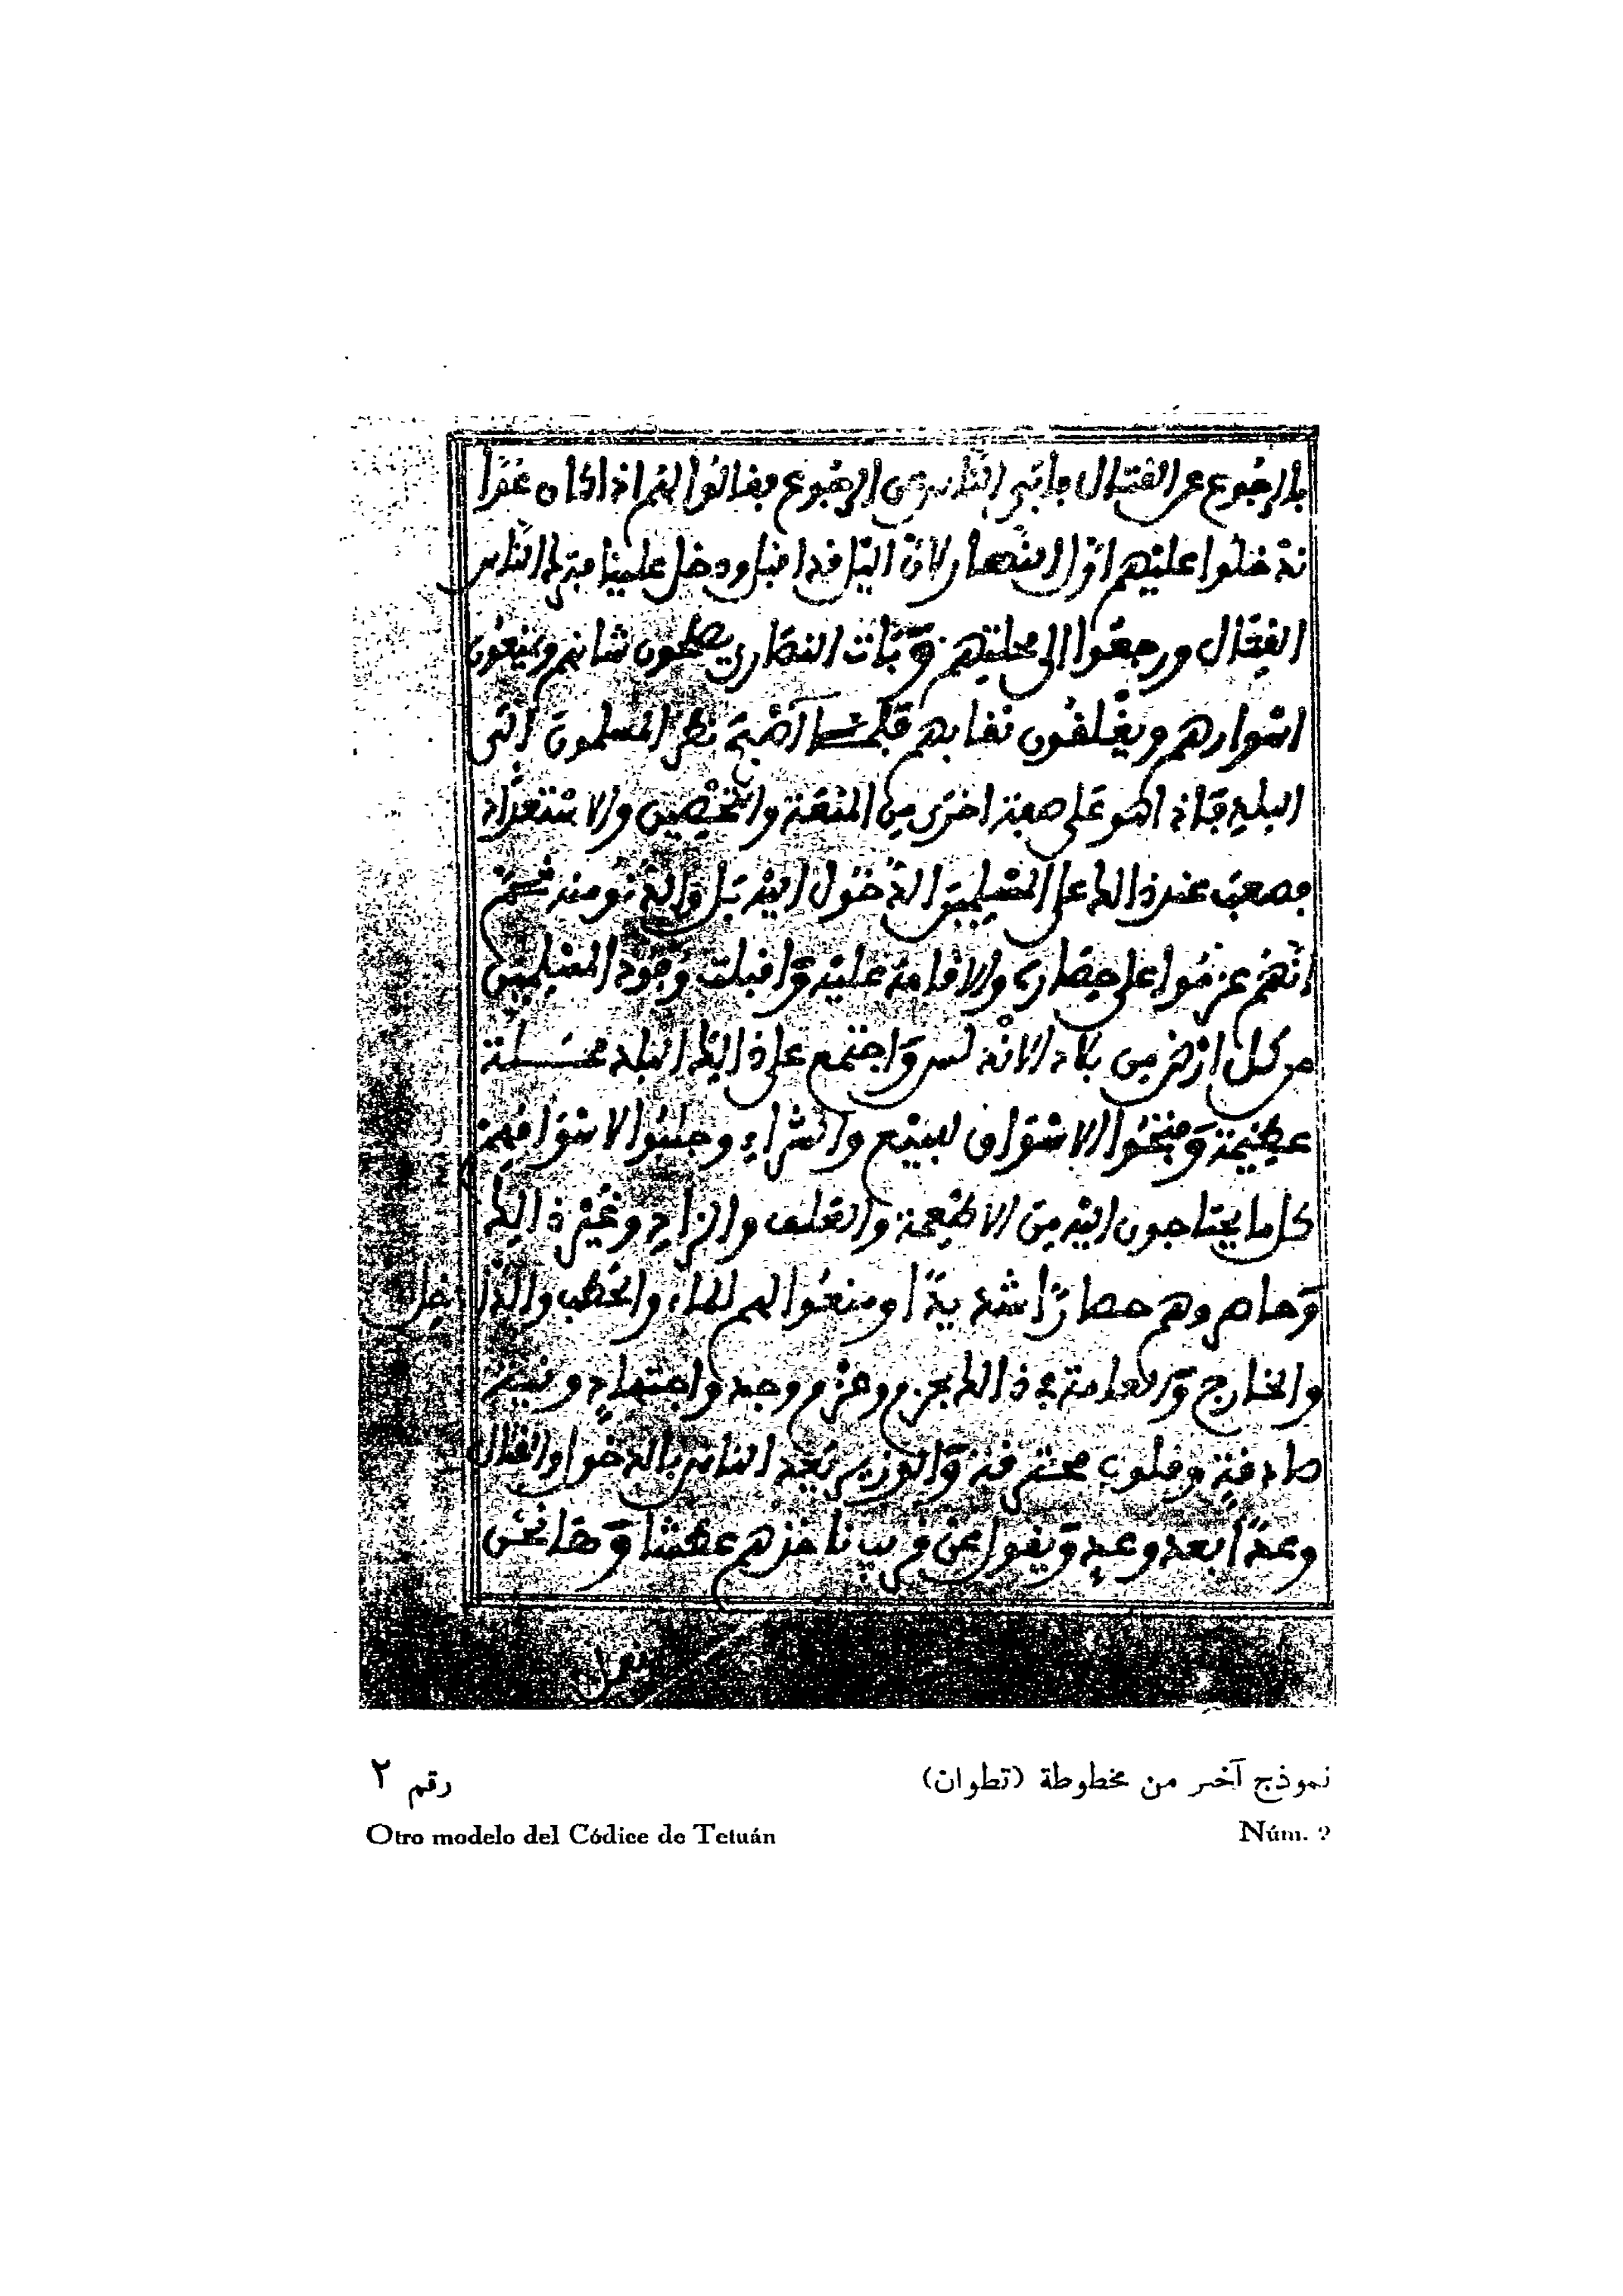 بالرجوع عن القتال فابى الناس من الرجوع فقالوا لهم اذا كان غدا
ندخلوا عليهم اول النهار لان اليل قد اقبل ودخل علينا فترك الناس
القتال ورجعوا الى محلتهم وبات النصارى يصلحون شانهم ويمنعون
اسوارهم ويغلفون نقابهم فلما اصبح نظر المسلمون الى
البلد فاذا هو على صفة اخرى من المنعة والتحصين والاستعداد
فصعب عند ذالك على المسلمين الدخول اليه بل والدنو منه ثم
انهم عزموا على حصاره والاقامة عليه واقبلت وجود المسلمين
من كل ارض من بلاد الاندلس واجتمع على ذالك البلد محلة
عظيمة وفتحوا الاسواق للبيع والشراء وجلبوا لاسواقهم
كل ما يحتاجون اليه من الاطعمة والعلف والزاد وغير ذالك
وحاصروهم حصارا شديدا ومنعوا لهم الماء والحطب والداخل
والخارج والعامة في ذالك بحزم وعزم وجد واجتهاد ونية
صادقة وقلوب محترقة والوزير يعد الناس بالدخول والقتال
وعدا بعد وعد ويقول عن قريب ناخذهم عطشا وها نحن
نموذج آخر من مخطوطة (تطوان)
رقم ٢
Otro modelo del Códice de Tetuán
Núm. 2